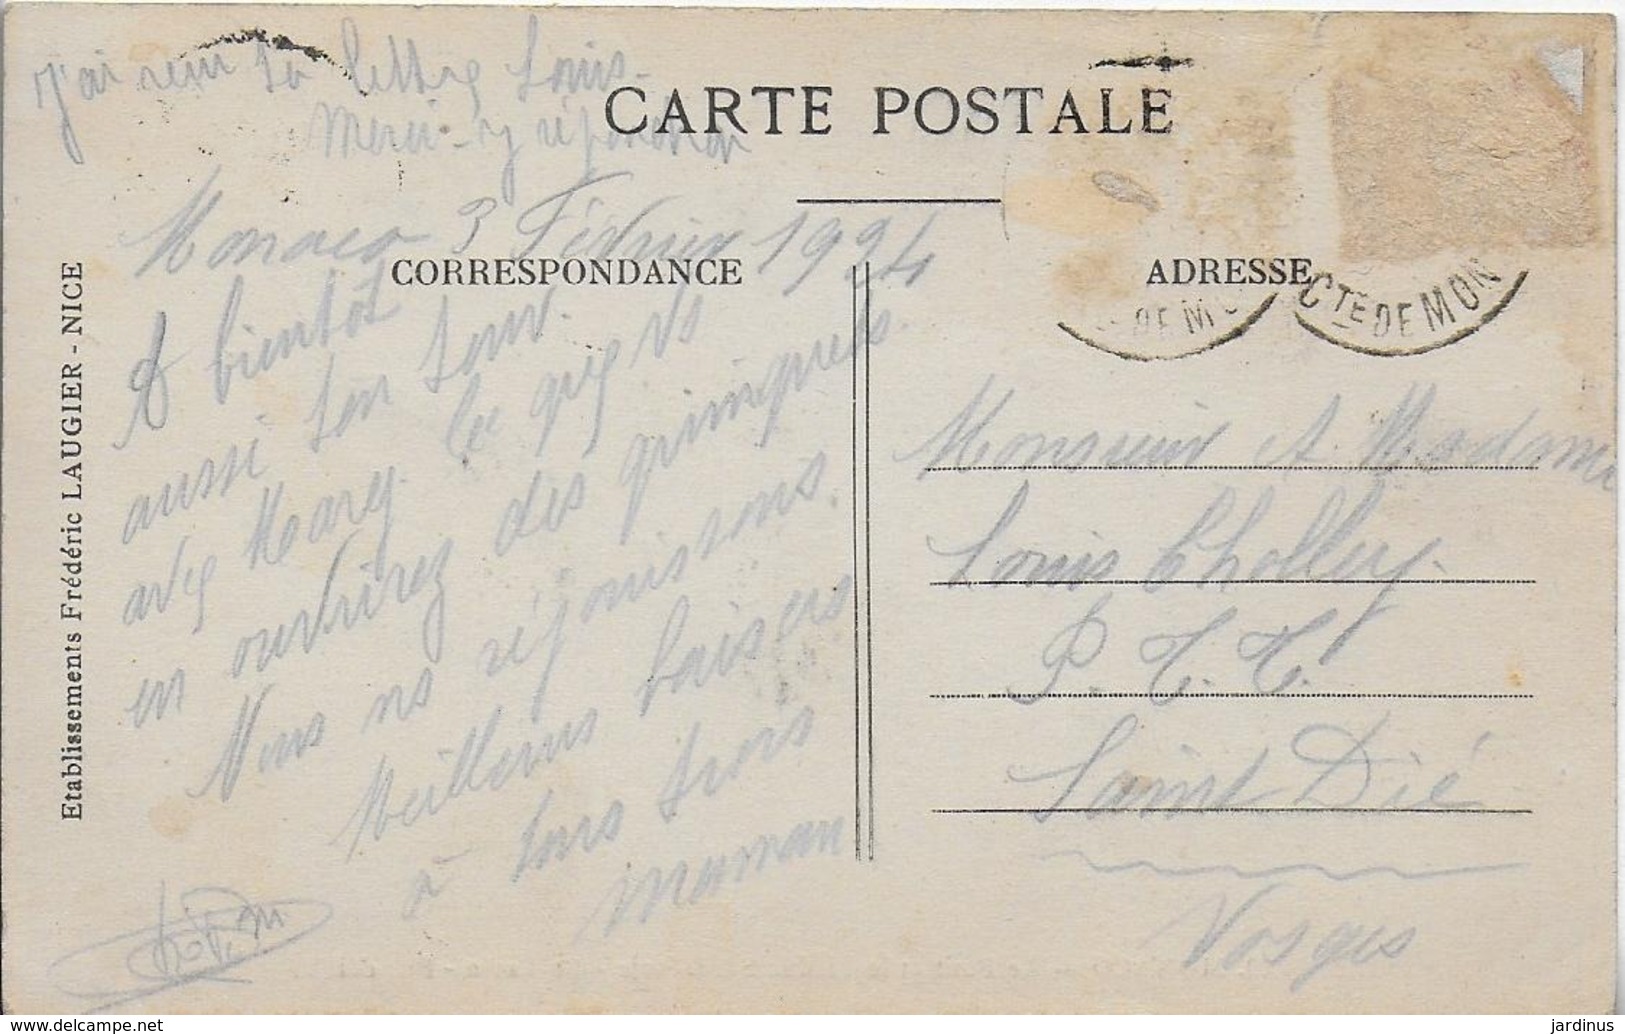 J'ai reçu ta lettre Louis -
Merci - y répondrai
CARTE POSTALE
Monaco 3 Février 1924
CORRESPONDANCE
A bientôt
aussi ton tour.
avec Mary. Ce que vs
en ouvrirez des quinquets.
Nous ns réjouissons.
Meilleurs baisers
à tous trois
maman
ADRESSE
CTE DE MON
DE MO
Monsieur et Madame
Louis Cholley.
P. T. T.
Saint Dié
Vosges
Etablissements Frédéric LAUGIER - NICE
www.delcampe.net
jardinus